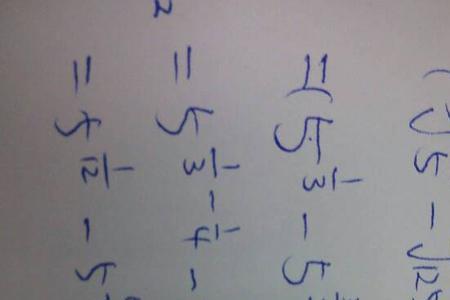 (∛5 - √12
=(5^(1/3) - 5
= 5^(1/3 - 1/4) -
= 5^(1/12) - 5